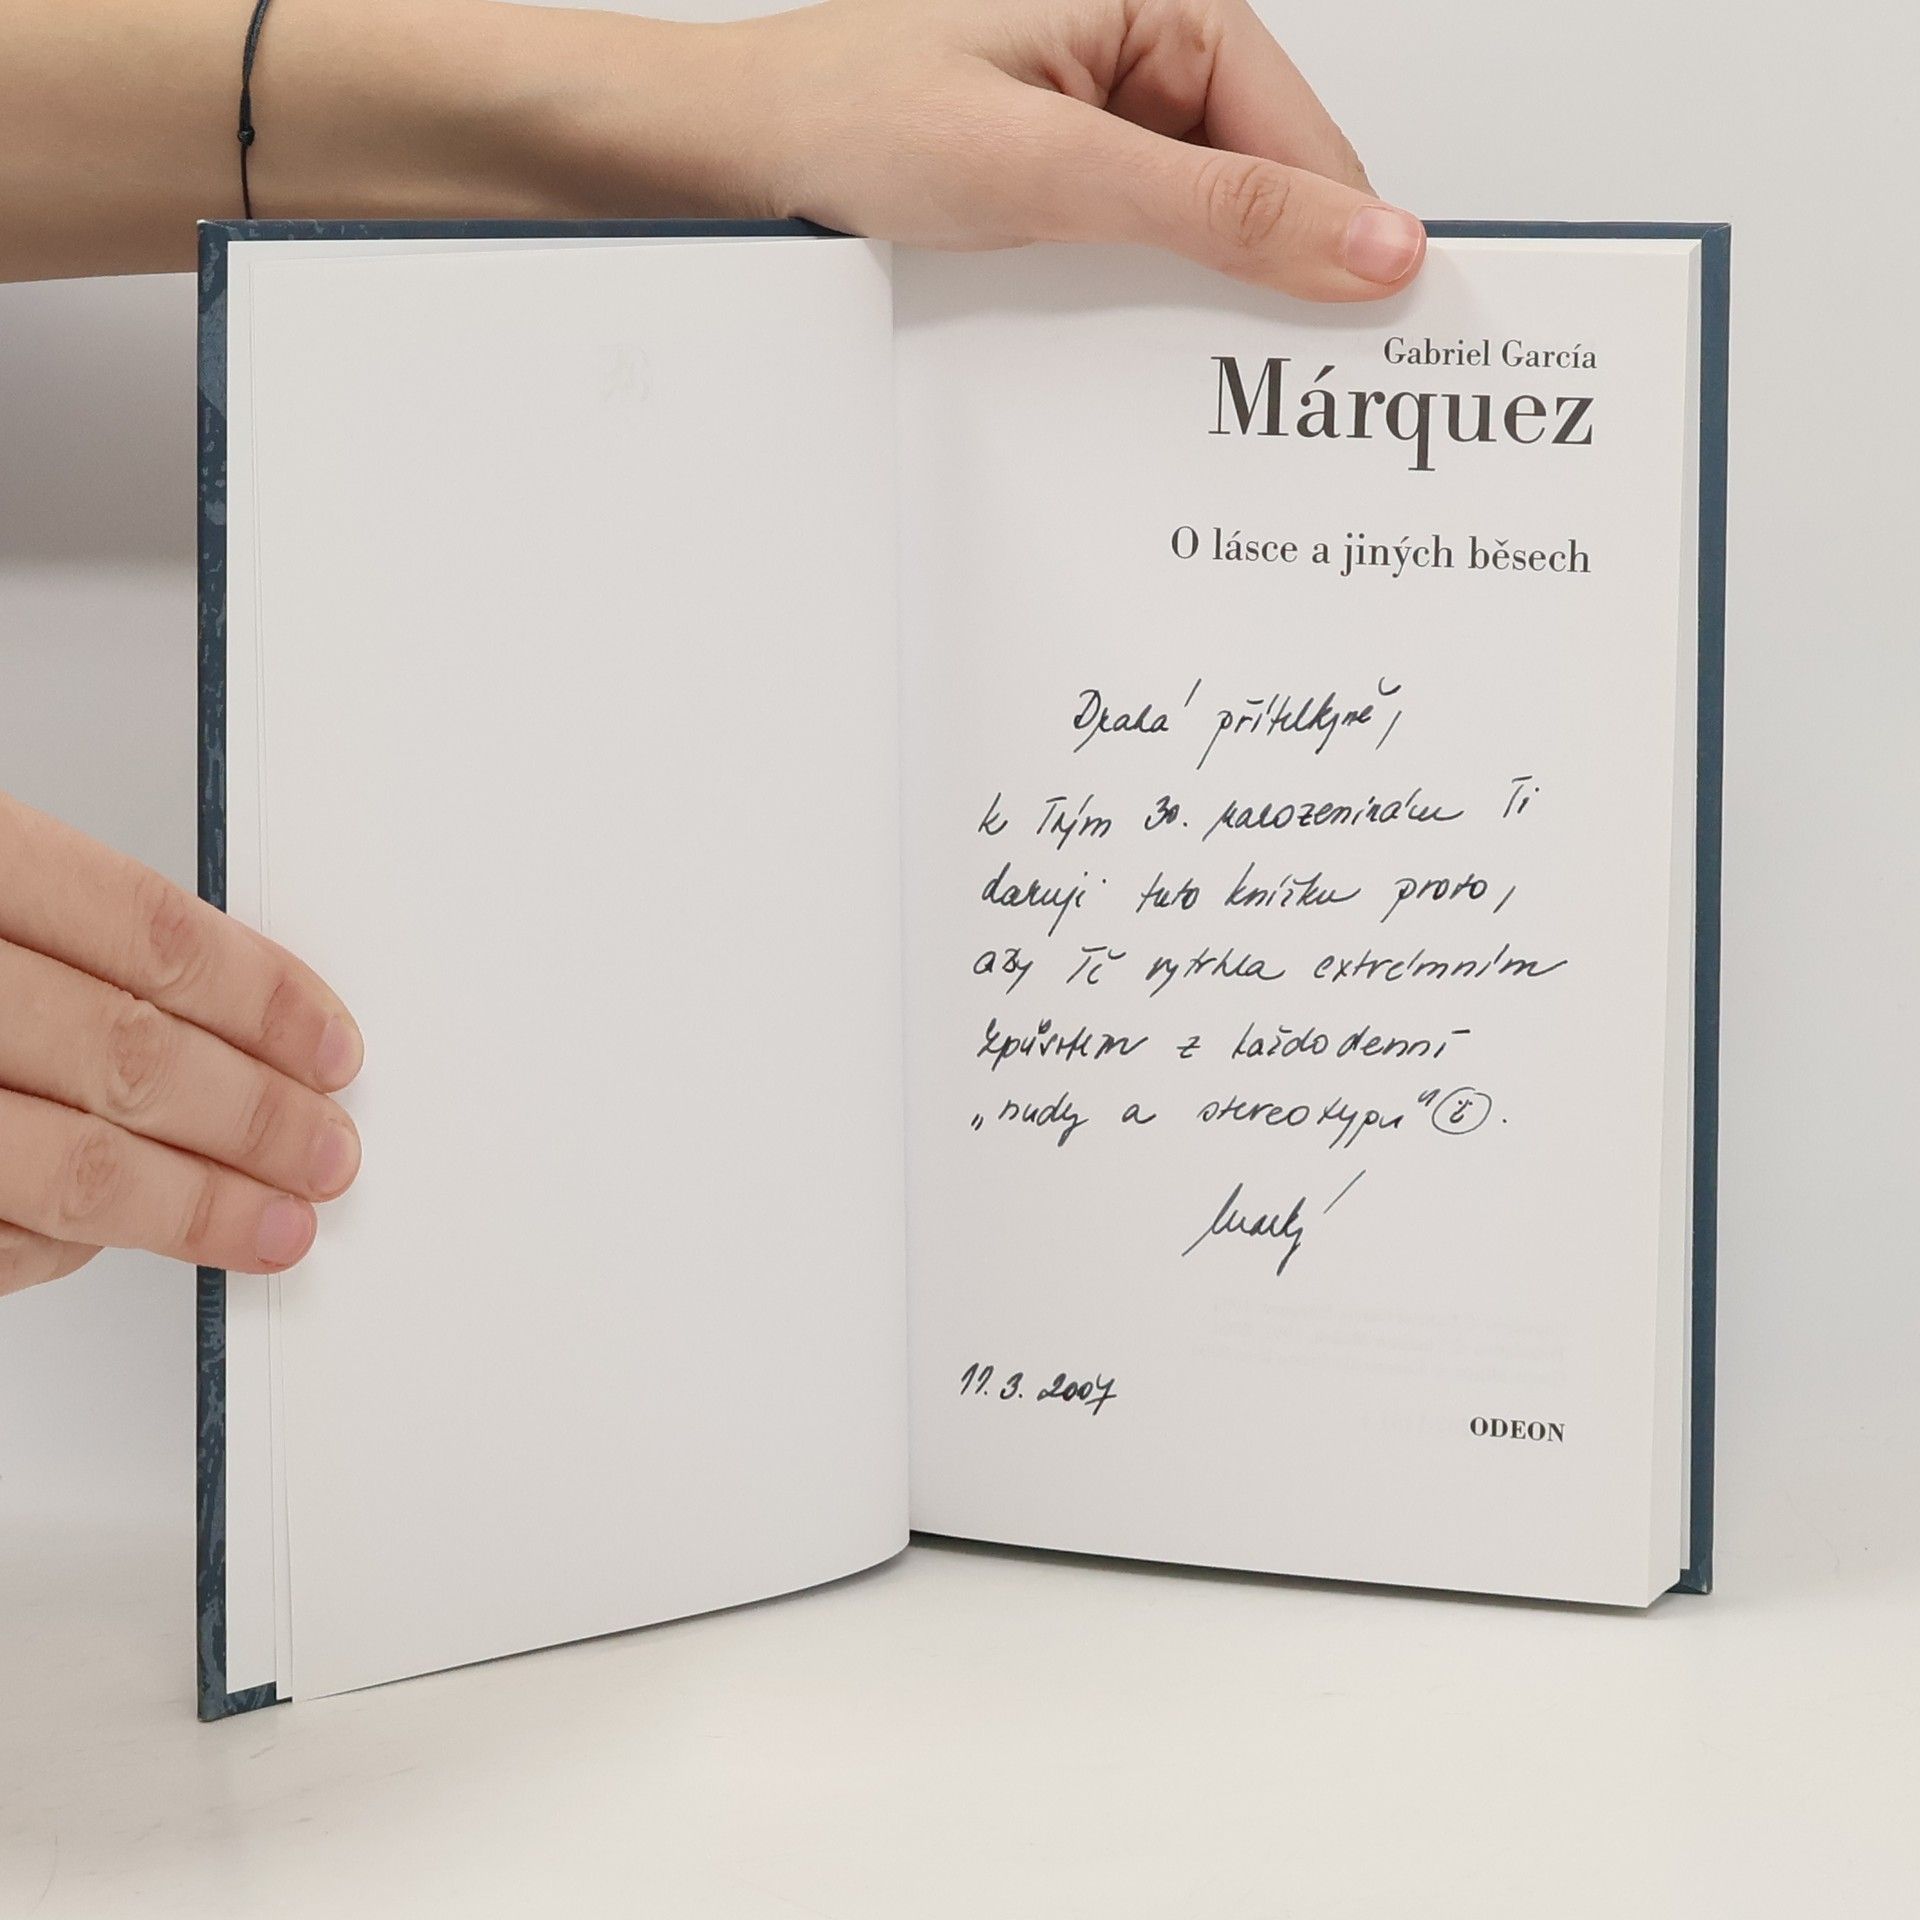 Gabriel García
Márquez
O lásce a jiných běsech
Drahá přítelkyně,
k Tvým 30. narozeninám Ti
daruji tuto knížku proto,
aby Tě vytrhla extrémním
způsobem z každodenní
„nudy a stereotypu“ .
11. 3. 2007
ODEON